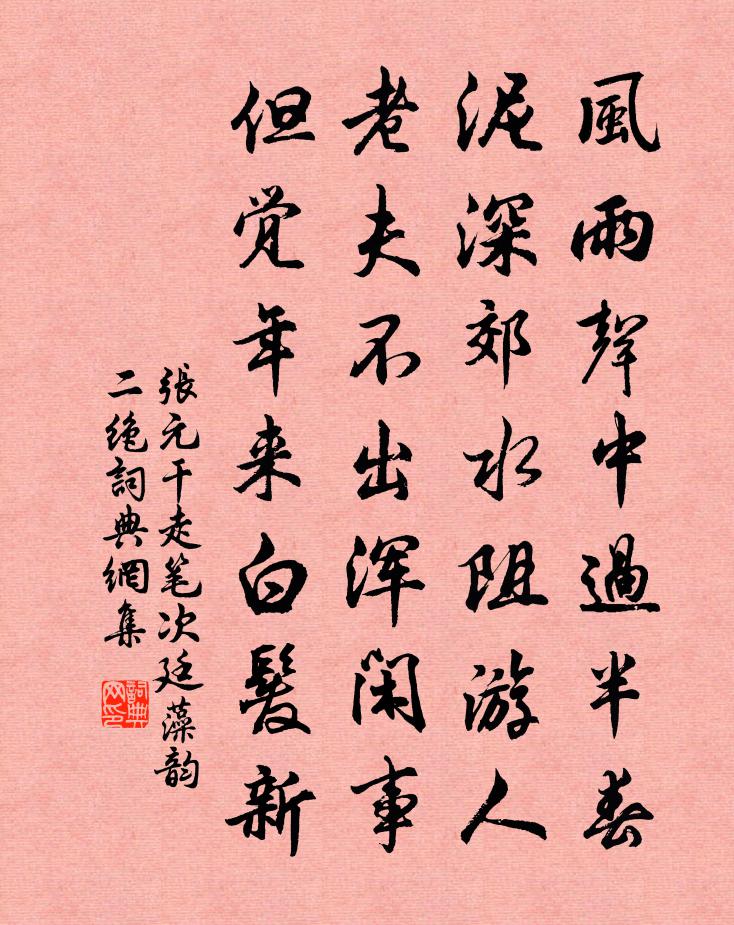 風雨聲中過半春
泥深郊水阻游人
老夫不出浑閑事
但觉年来白髮新
張元干走笔次廷藻韵
二绝詞典網集
詞典网印